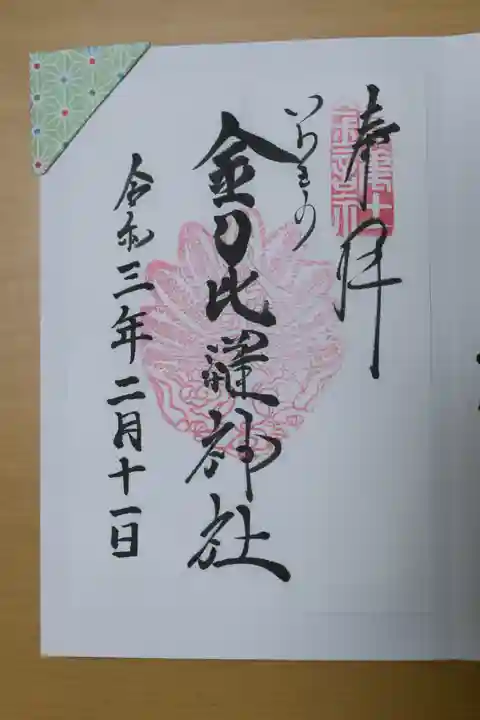 奉拝
いちきの
金刀比羅神社
令和三年二月十一日